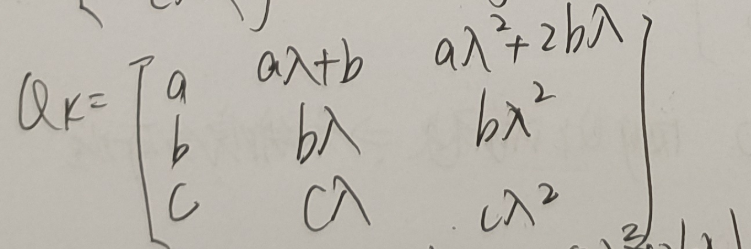 a aλ+b aλ²+2bλ
Qk= b bλ bλ²
c cλ cλ²